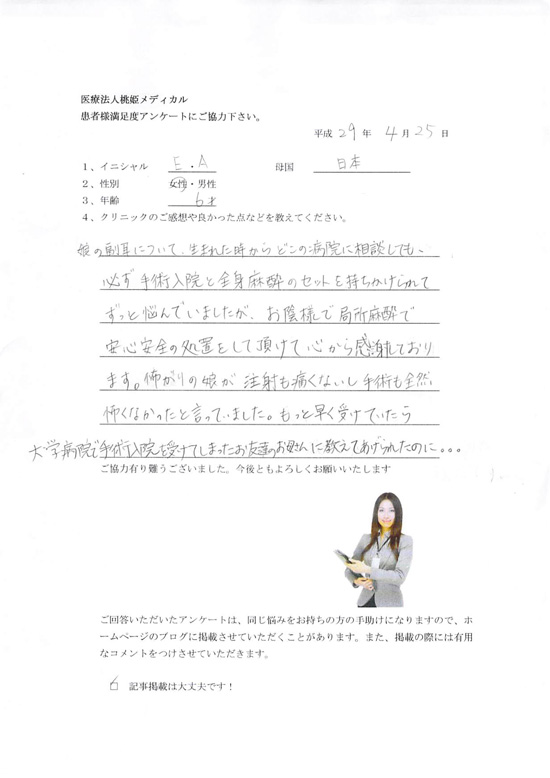 医療法人桃姫メディカル
患者様満足度アンケートにご協力下さい。
平成 29 年 4 月 25 日
1、イニシャル E . A 母国 日本
2、性別 女性・男性
3、年齢 6才
4、クリニックのご感想や良かった点などを教えてください。
娘の副耳について、生まれた時からどこの病院に相談しても、
必ず手術入院と全身麻酔のセットを持ちかけられて
ずっと悩んでいましたが、お陰様で局所麻酔で
安心安全の処置をして頂けて心から感謝しており
ます。怖がりの娘が注射も痛くないし手術も全然
怖くなかったと言っていました。もっと早く受けていたら
大学病院で手術入院を受けてしまったお友達のお母さんに教えてあげられたのに...
ご協力有り難うございました。今後ともよろしくお願いいたします
ご回答いただいたアンケートは、同じ悩みをお持ちの方の手助けになりますので、ホ
ームページのブログに掲載させていただくことがあります。また、掲載の際には有用
なコメントをつけさせていただきます。
記事掲載は大丈夫です！